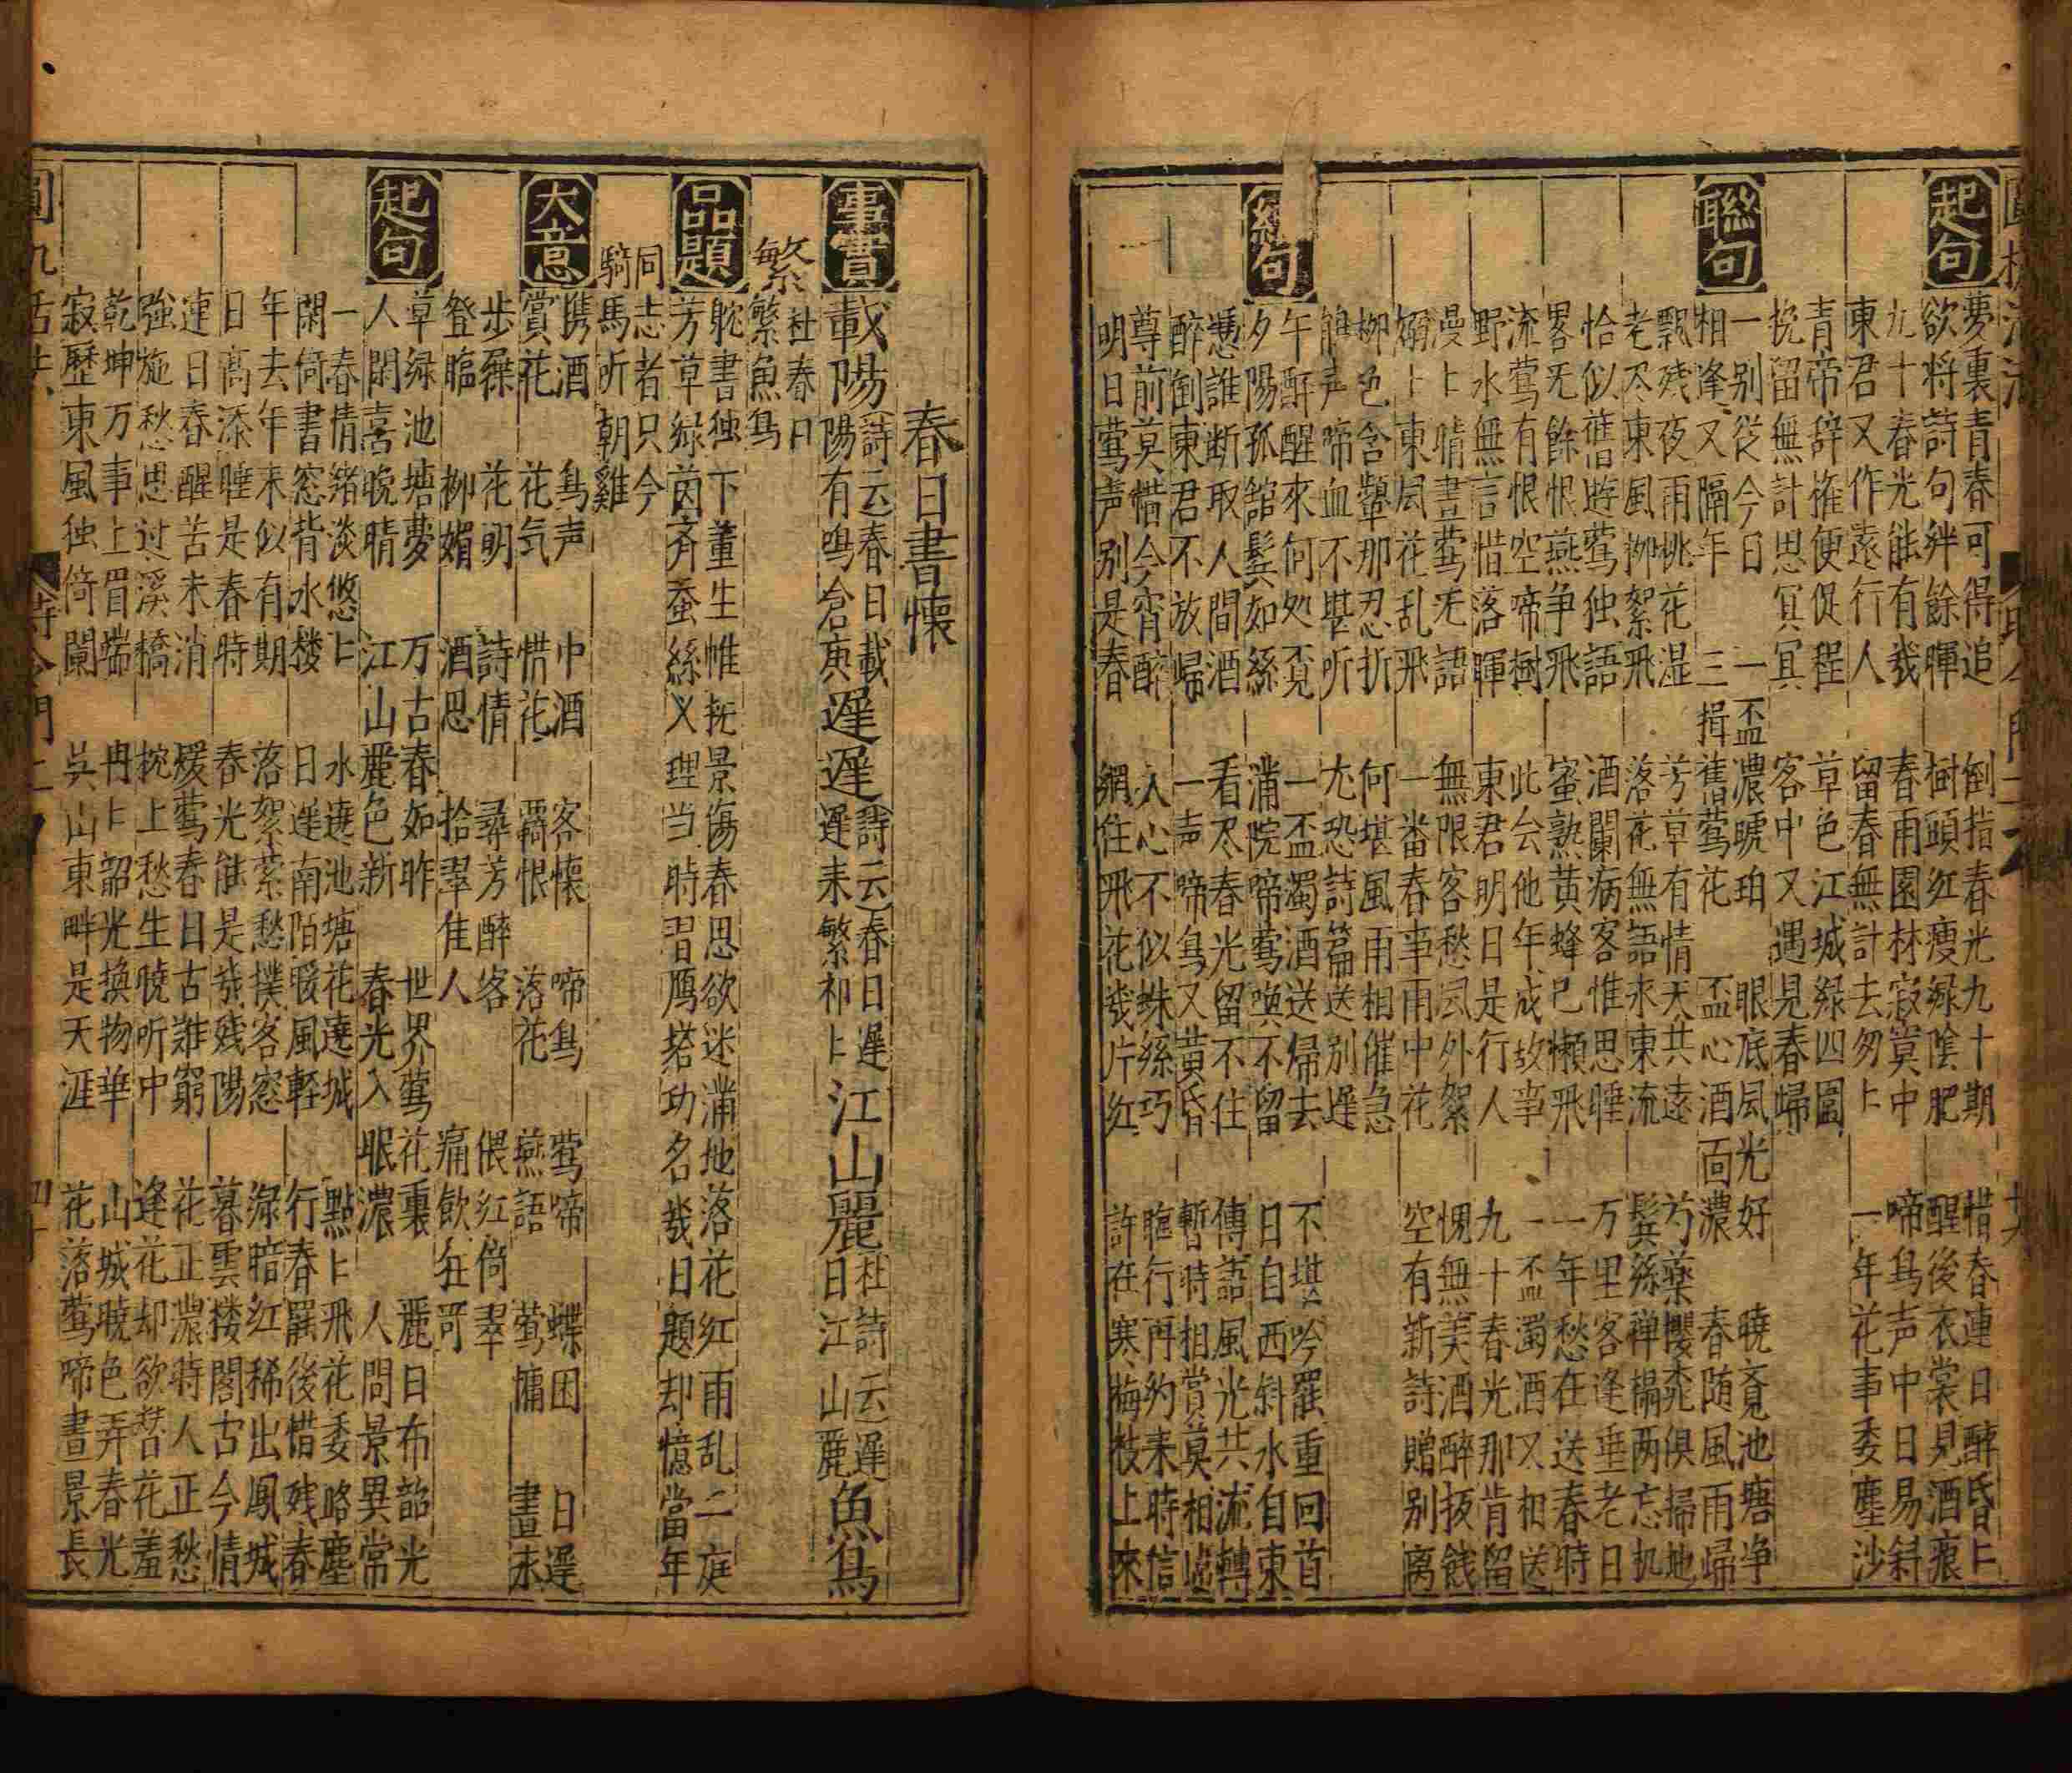 起句
夢裏青春可得追 倒指春光九十期 惜春連日醉昏〻
欲将詩句絆餘暉 樹頭红瘦緑陰肥 醒後衣裳見酒痕
九十春光能有幾 春雨園林寂寞中 啼鳥声中日易斜
東君又作遠行人 留春無計去匆〻 一年花事委塵沙
青帝辞権便促程 草色江城緑四圍
挽留無計思冥冥 客中又遇見春歸
聯句
一别従今日 一盃濃琥珀 眼底風光好 曉竟池塘净
相逢又隔年 三揖舊鶯花 盃心酒面濃 春随風雨歸
飄残夜雨桃花湿 芳草有情天共遠 芍薬櫻桃俱掃地
老尽東風柳絮飛 落花無語水東流 鬂絲禅榻两忘机
恰似舊遊鶯独語 酒闌病客惟思睡 万里客逢垂老日
畧无餘恨燕争飛 蜜熟黄蜂已懶飛 一年愁在送春時
流莺有恨空啼樹 此会他年成故事 一盃濁酒又相送
野水無言惜落暉 東君明日是行人 九十春光那肯留
漫〻晴晝莺无語 無限客愁風外絮 愧無美酒醉扳餞
嫋〻東風花乱飛 一番春事雨中花 空有新詩贈别离
柳色含顰那忍折 何堪風雨相催急
鵑声啼血不堪听 尤恐詩篇送别遅
結句
午酲醒來何処覓 一盃濁酒送帰去 不堪吟罷重回首
夕陽孤舘鬂如絲 滿院啼莺喚不留 日自西斜水自東
憑誰断取人間酒 看尽春光留不住 傳語風光共流轉
醉倒東君不放歸 一声啼鳥又黄昏 暫時相賞莫相違
尊前莫惜今宵醉 人心不似蛛絲巧 臨行再約来時信
明日莺声别是春 網住飛花幾片红 許在寒梅枝上來
春日書懷
事實
載陽 詩云春日載陽有鳴倉庚 遲遲 詩云春日遲遲采繁祁〻 江山麗 杜詩云遲日江山麗 魚鳥
繁 杜春日繁魚鳥
品題
躭書独下董生惟 玩景傷春思欲迷 滿地落花红雨乱 一庭
芳草緑茵齐 蚕絲义理当時習 鴈塔功名幾日題 却憶當年
同志者 只今
騎馬听朝雞
大意
携酒 鳥声 中酒 客懷 啼鳥 莺啼 蝶困 日遲
賞花 花気 惜花 羇恨 落花 燕語 莺慵 晝永
步屧 花明 詩情 尋芳醉客 偎红倚翠
登臨 柳媚 酒思 拾翠佳人 痛飲狂哥
起句
草緑池塘夢 万古春如昨 世界莺花裏 麗日布韶光
人閑喜晚晴 江山麗色新 春光入眼濃 人間景異常
一春情緒淡悠〻 水遶池塘花遶城 點〻飛花委路塵
閑倚書窓背水楼 日遲南陌暖風軽 行春罷後惜残春
年去年来似有期 落絮縈愁撲客窓 緑暗红稀出鳳城
日高添睡是春時 春光能是幾残陽 暮雲楼閣古今情
連日春醒苦未消 煖莺春日古難窮 花正濃時人正愁
強施愁思过溪橋 枕上愁生曉听中 逢花却欲替花羞
乾坤万事上眉端 冉〻韶光換物華 山城曉色弄春光
寂歷東風独倚闌 吳山東畔是天涯 花落莺啼晝景長